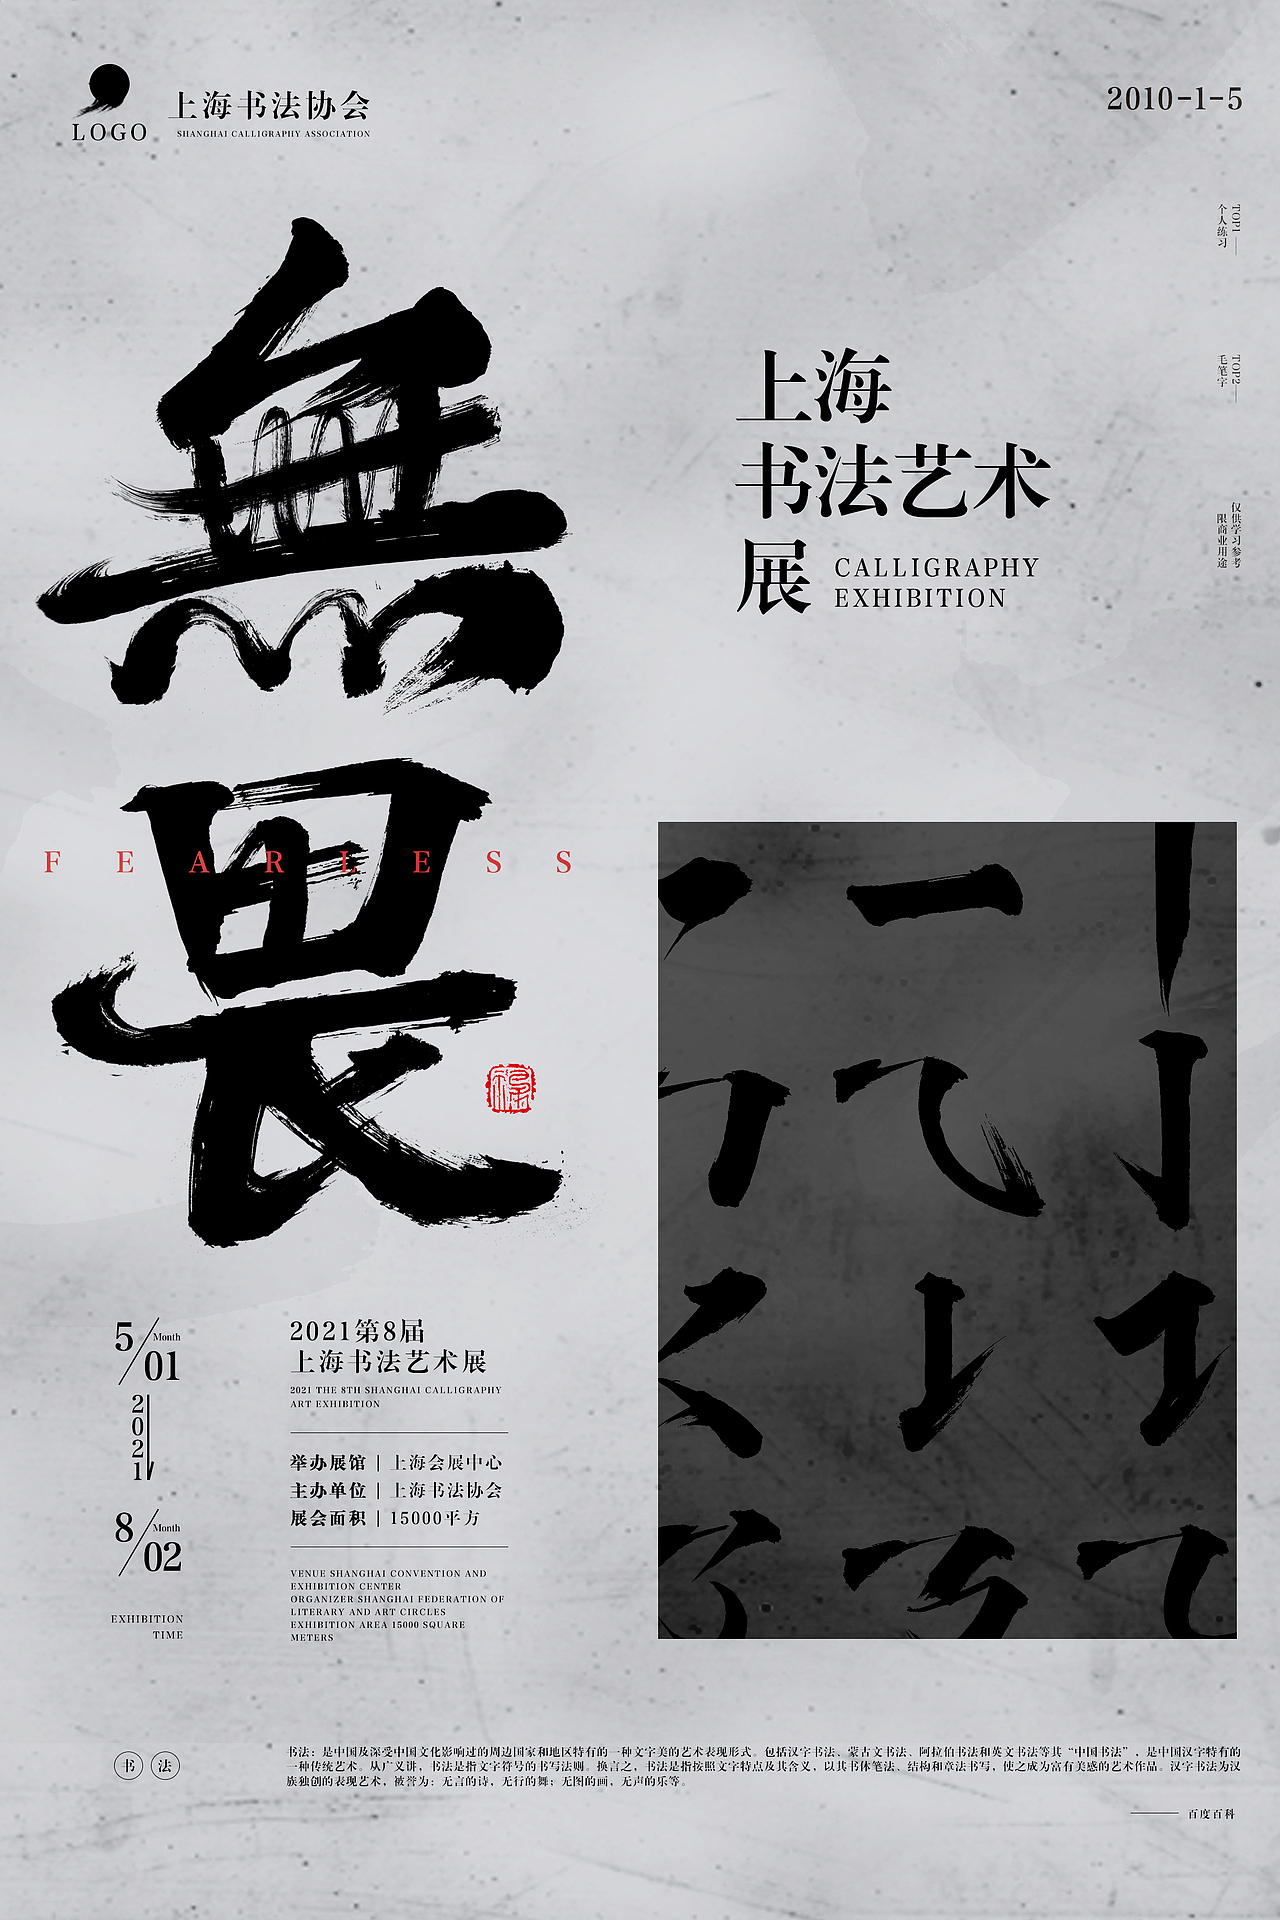 LOGO
上海书法协会
SHANGHAI CALLIGRAPHY ASSOCIATION
2010-1-5
TOP1
个人练习
TOP2
毛笔字
仅供学习参考
限商业用途
無
畏
FEARLESS
上海
书法艺术
展
CALLIGRAPHY
EXHIBITION
5/01
Month
2021
8/02
Month
EXHIBITION
TIME
2021第8届
上海书法艺术展
2021 THE 8TH SHANGHAI CALLIGRAPHY
ART EXHIBITION
举办展馆 | 上海会展中心
主办单位 | 上海书法协会
展会面积 | 15000平方
VENUE SHANGHAI CONVENTION AND
EXHIBITION CENTER
ORGANIZER SHANGHAI FEDERATION OF
LITERARY AND ART CIRCLES
EXHIBITION AREA 15000 SQUARE
METERS
书 法
书法：是中国及深受中国文化影响过的周边国家和地区特有的一种文字美的艺术表现形式。包括汉字书法、蒙古文书法、阿拉伯书法和英文书法等其“中国书法”，是中国汉字特有的
一种传统艺术。从广义讲，书法是指文字符号的书写法则。换言之，书法是指按照文字特点及其含义，以其书体笔法、结构和章法书写，使之成为富有美感的艺术作品。汉字书法为汉
族独创的表现艺术，被誉为：无言的诗，无行的舞；无图的画，无声的乐等。
百度百科